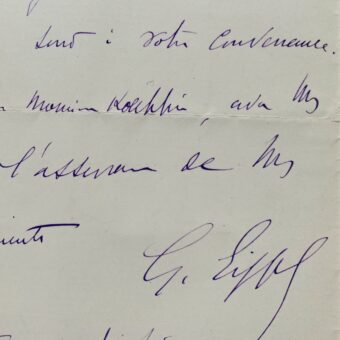 sont à votre convenance.
Monsieur Koechlin, avec mes
l'assurance de mes
G. Eiffel